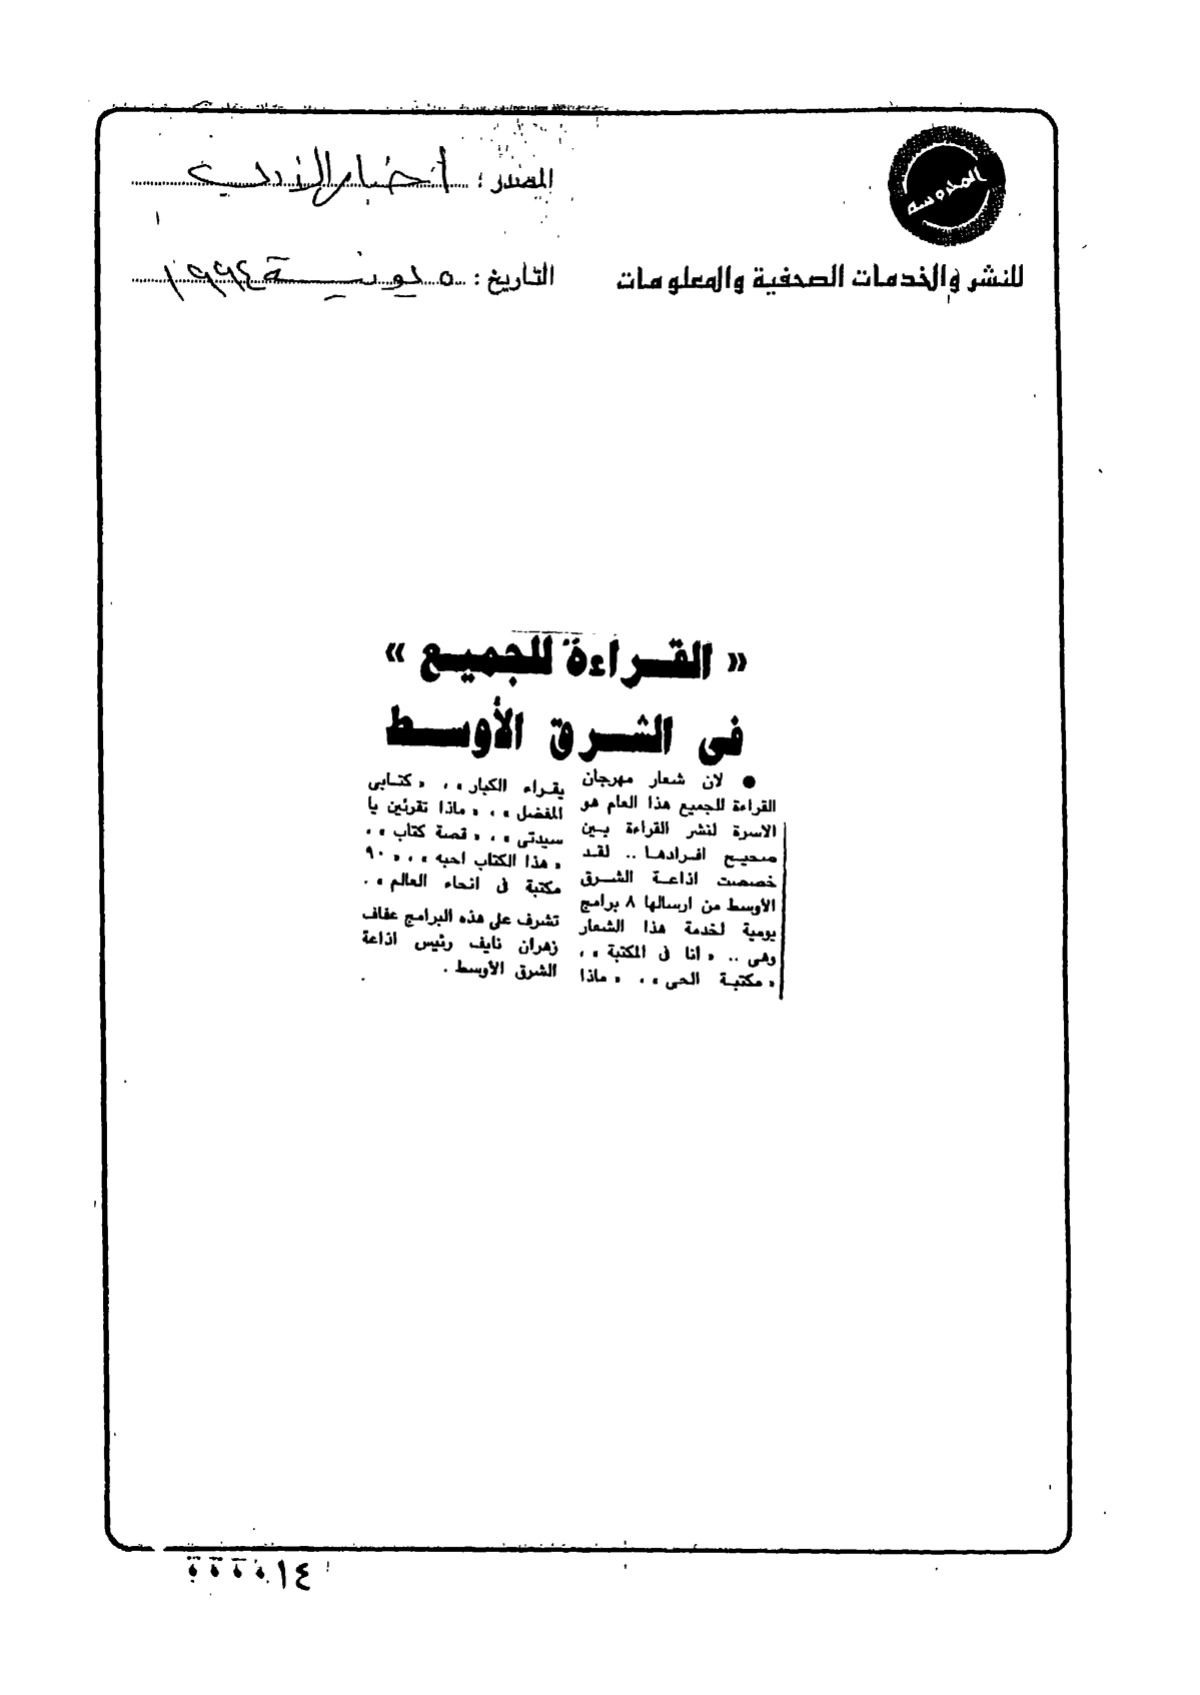 المحروسة
للنشر والخدمات الصحفية والمعلومات
المصدر : أخبار الأدب
التاريخ : ٥ يونية ١٩٩٤
« القراءة للجميع »
فى الشرق الأوسط
● لان شعار مهرجان
القراءة للجميع هذا العام هو
الاسرة لنشر القراءة بين
جميع افرادها .. لقد
خصصت اذاعة الشرق
الأوسط من ارسالها ٨ برامج
يومية لخدمة هذا الشعار
وهى .. « أنا فى المكتبة » ،
« مكتبة الحى » ، « ماذا
يقراء الكبار » ، « كتابى
المفضل » ، « ماذا تقرئين يا
سيدتى » ، « قصة كتاب » ،
« هذا الكتاب احبه » ، « ٩٠
مكتبة فى انحاء العالم » .
تشرف على هذه البرامج عفاف
زهران نايف رئيس اذاعة
الشرق الأوسط .
١٤